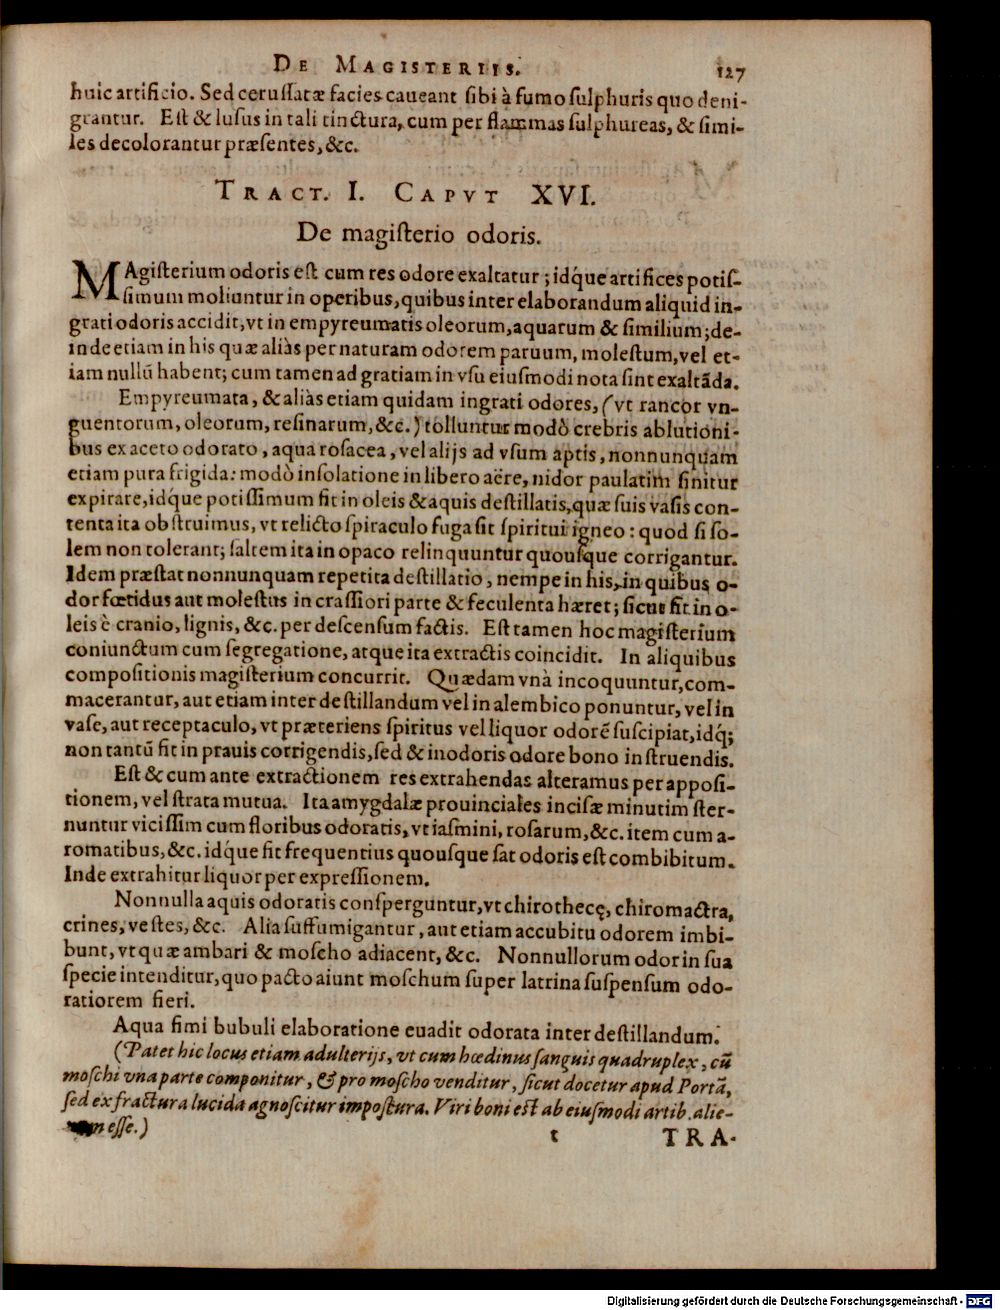 DE MAGISTERIIS. 127
huic artificio. Sed cerussatæ facies caueant sibi à fumo sulphuris quo deni-
grantur. Est & lusus in tali tinctura, cum per flammas sulphureas, & simi-
les decolorantur præsentes, &c.
TRACT. I. CAPVT XVI.
De magisterio odoris.
MAgisterium odoris est cum res odore exaltatur; idq́ue artifices potis-
simum moliuntur in operibus, quibus inter elaborandum aliquid in-
grati odoris accidit, vt in empyreumatis oleorum, aquarum & similium; de-
inde etiam in his quæ aliàs per naturam odorem paruum, molestum, vel et-
iam nullũ habent; cum tamen ad gratiam in vsu eiusmodi nota sint exaltãda.
Empyreumata, & aliàs etiam quidam ingrati odores, (vt rancor vn-
guentorum, oleorum, resinarum, &c.) tolluntur modò crebris ablutioni-
bus ex aceto odorato, aqua rosacea, vel alijs ad vsum aptis, nonnunquam
etiam pura frigida: modò insolatione in libero aëre, nidor paulatim sinitur
expirare, idque potissimum fit in oleis & aquis destillatis, quæ suis vasis con-
tenta ita obstruimus, vt relicto spiraculo fuga sit spiritui igneo: quod si so-
lem non tolerant; saltem ita in opaco relinquuntur quousque corrigantur.
Idem præstat nonnunquam repetita destillatio, nempe in his, in quibus o-
dor fœtidus aut molestus in crassiori parte & feculenta hæret; sicut fit in o-
leis è cranio, lignis, &c. per descensum factis. Est tamen hoc magisterium
coniunctum cum segregatione, atque ita extractis coincidit. In aliquibus
compositionis magisterium concurrit. Quædam vnà incoquuntur, com-
macerantur, aut etiam inter destillandum vel in alembico ponuntur, vel in
vase, aut receptaculo, vt præteriens spiritus vel liquor odorẽ suscipiat, idq́;
non tantũ fit in prauis corrigendis, sed & inodoris odore bono instruendis.
Est & cum ante extractionem res extrahendas alteramus per apposi-
tionem, vel strata mutua. Ita amygdalæ prouinciales incisæ minutim ster-
nuntur vicissim cum floribus odoratis, vt iasmini, rosarum, &c. item cum a-
romatibus, &c. idq́ue fit frequentius quousque sat odoris est combibitum.
Inde extrahitur liquor per expressionem.
Nonnulla aquis odoratis consperguntur, vt chirothecę, chiromactra,
crines, vestes, &c. Alia suffumigantur, aut etiam accubitu odorem imbi-
bunt, vt quæ ambari & moscho adiacent, &c. Nonnullorum odor in sua
specie intenditur, quo pacto aiunt moschum super latrina suspensum odo-
ratiorem fieri.
Aqua fimi bubuli elaboratione euadit odorata inter destillandum.
(Patet hic locus etiam adulterijs, vt cum hœdinus sanguis quadruplex, cũ
moschi vna parte componitur, & pro moscho venditur, sicut docetur apud Portã,
sed ex fractura lucida agnoscitur impostura. Viri boni est ab eiusmodi artib. alie-
esse.)
t TRA-
Digitalisierung gefördert durch die Deutsche Forschungsgemeinschaft - DFG